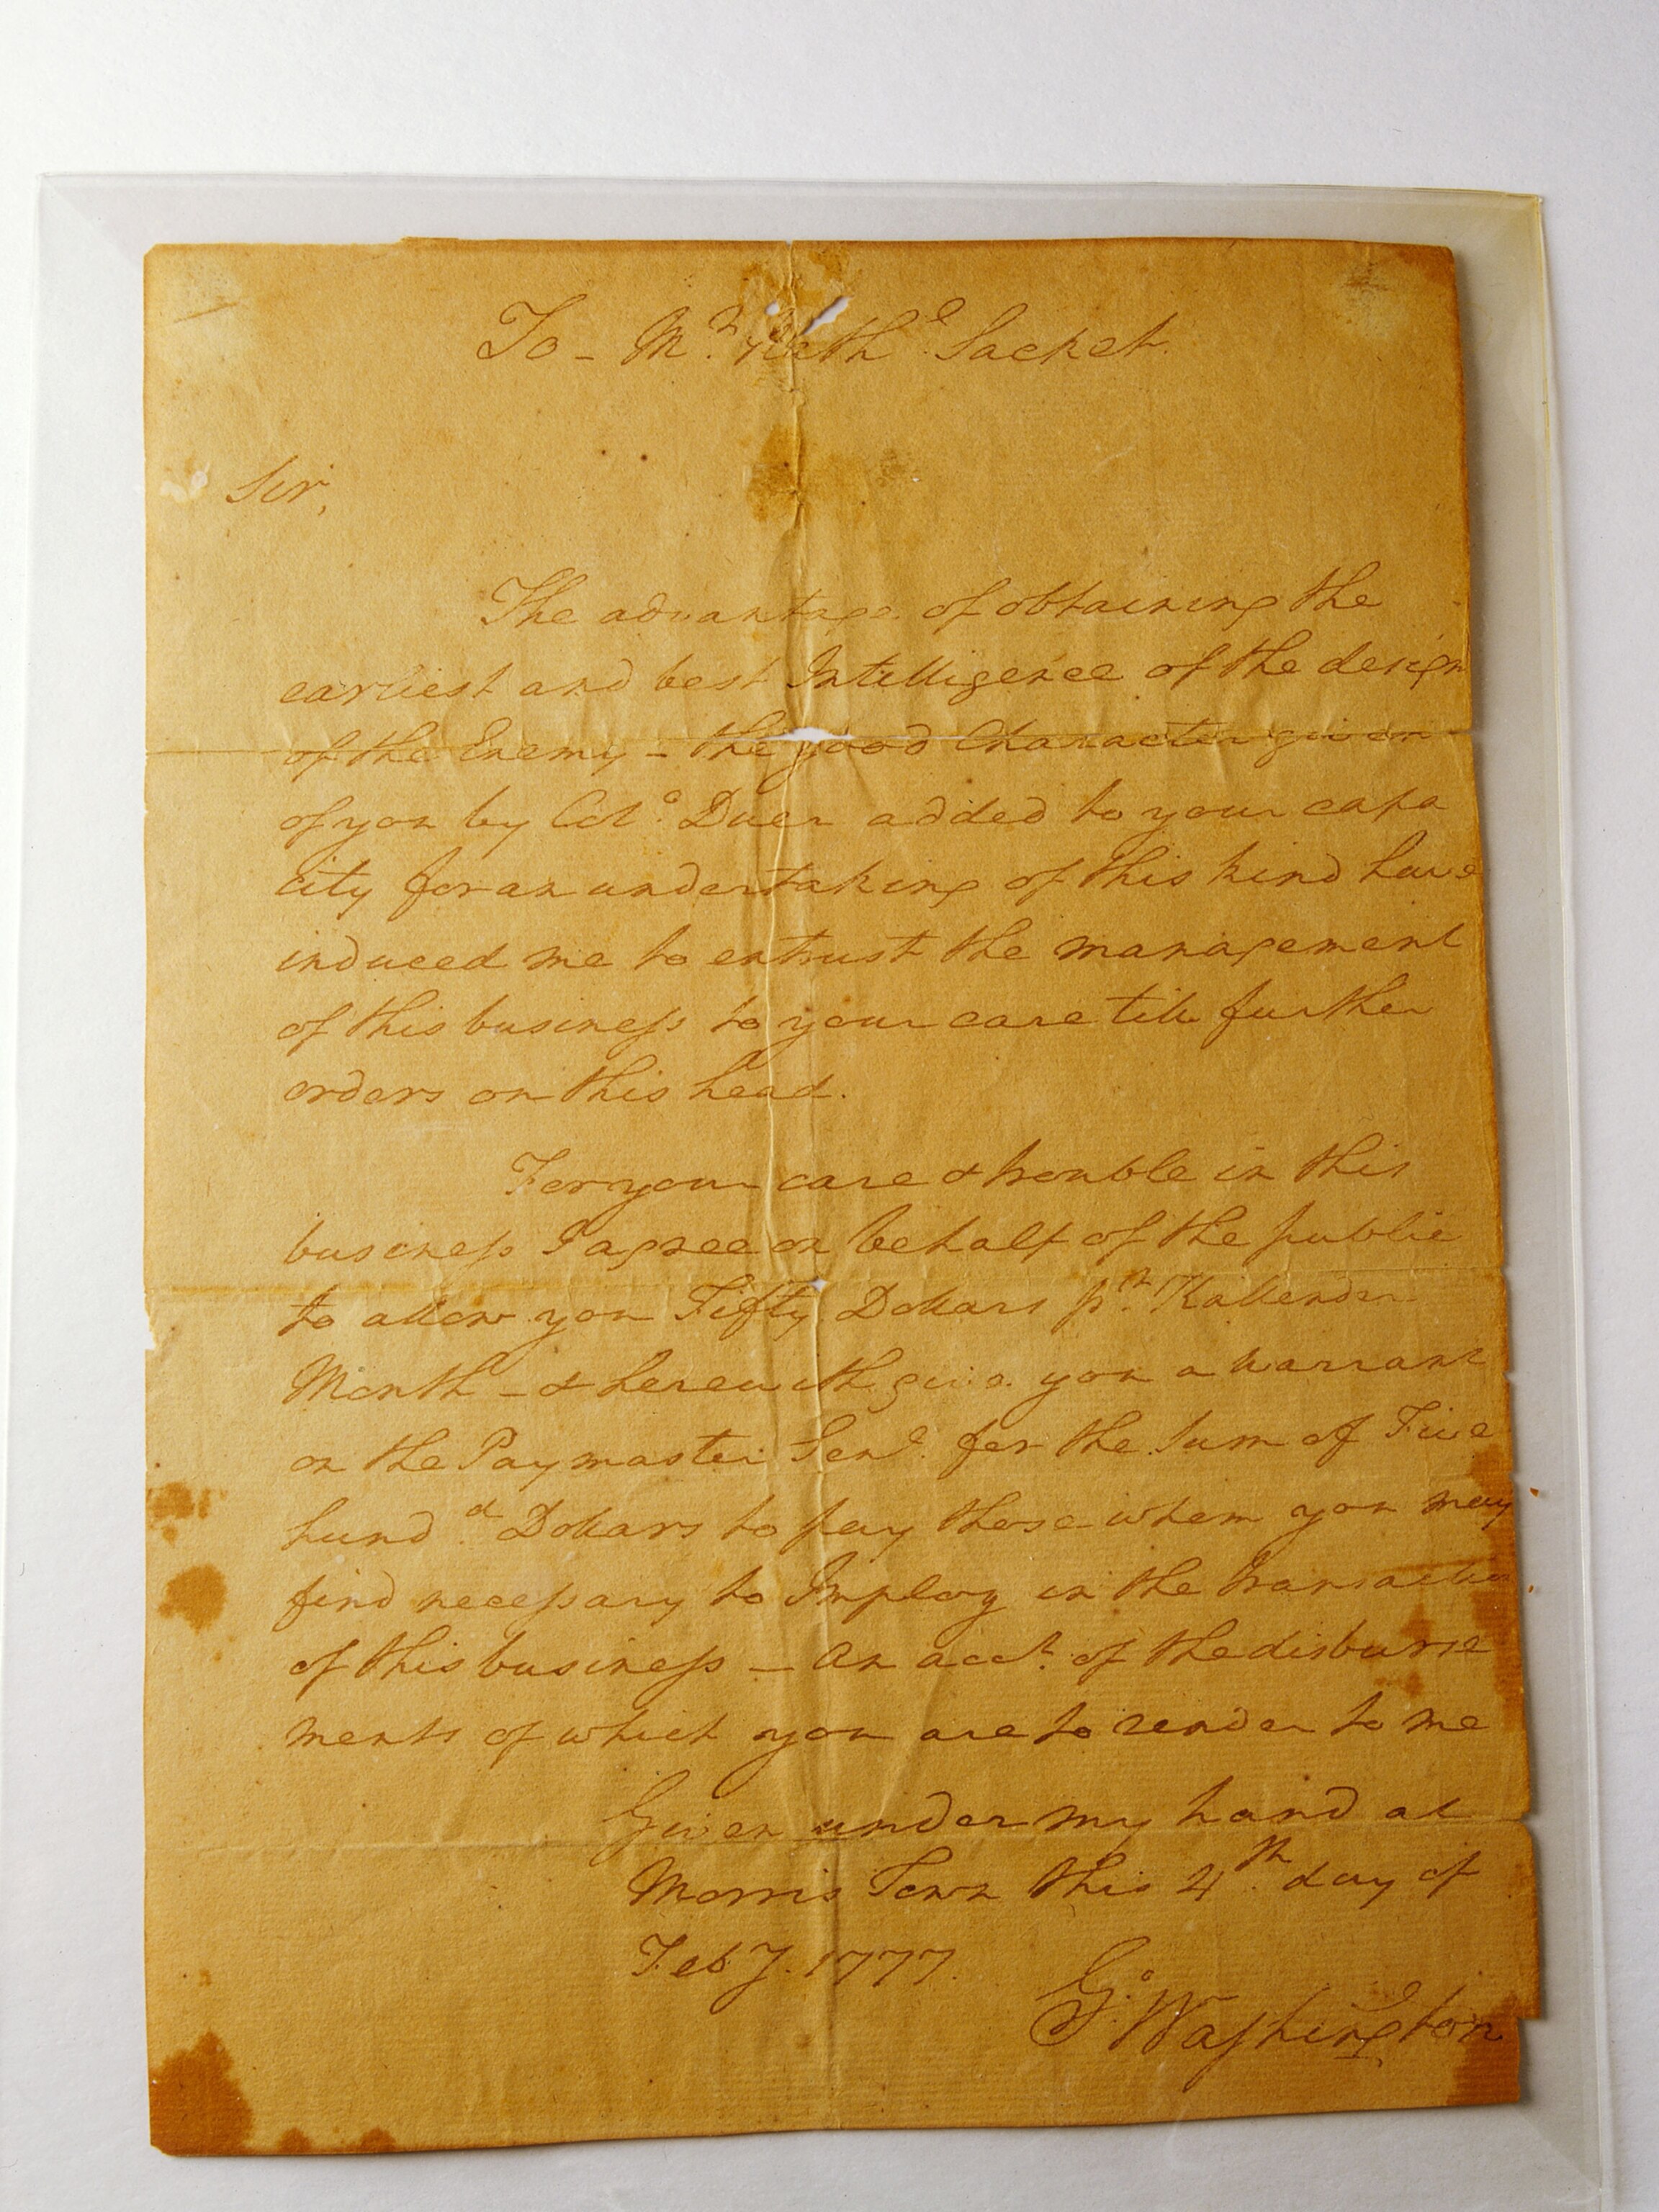 To - Mr. Nathl. Sacket.
Sir,
The advantage of obtaining the
earliest and best Intelligence of the design
of the Enemy - the good Character given
of you by Colo. Duer added to your capa
city for an undertaking of this kind have
induced me to entrust the management
of this business to your care till further
orders on this head.
For your care & trouble in this
business I agree on behalf of the public
to allow you Fifty Dollars pr. Kallender
Month - & herewith give you a warrant
on the Paymaster Genl. for the Sum of Five
hund.d Dollars to pay those whom you may
find necessary to Imploy in the transaction
of this business - an acct. of the disburse
ments of which you are to render to me
Given under my hand at
Morris Town this 4th. day of
Feby. 1777.
Go. Washington